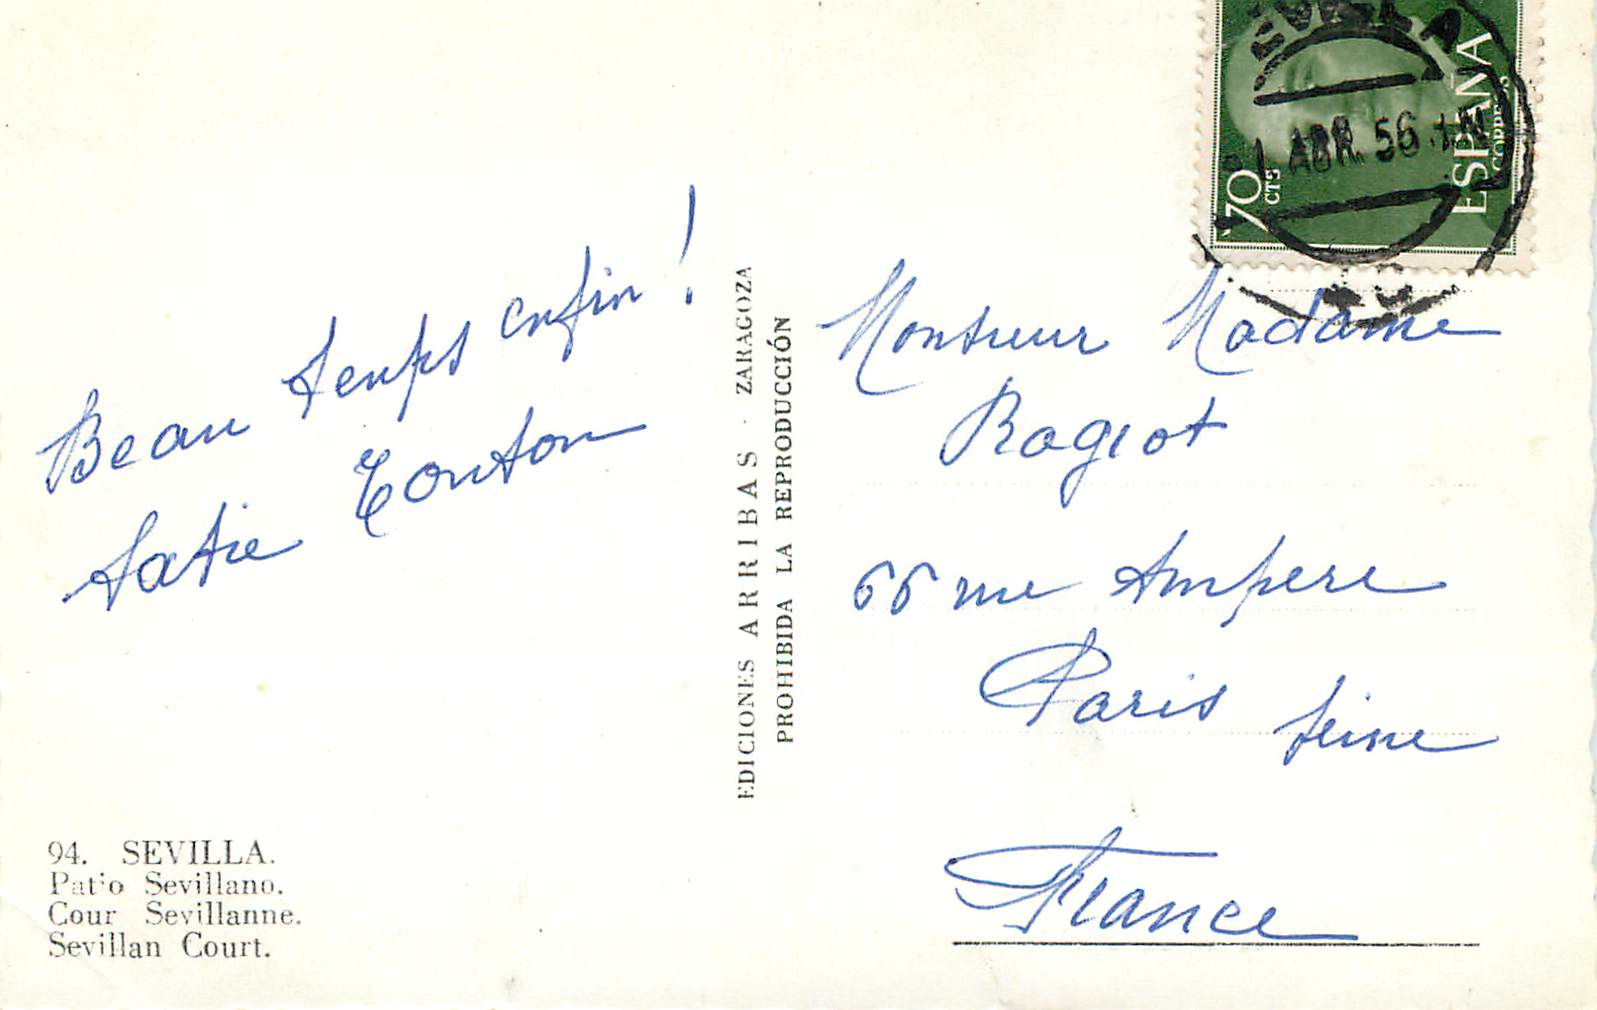 Beau temps enfin !
tatie Tonton
94. SEVILLA.
Patio Sevillano.
Cour Sevillanne.
Sevillan Court.
EDICIONES ARRIBAS - ZARAGOZA
PROHIBIDA LA REPRODUCCIÓN
SEVILLA
1 ABR. 56
70 CTS
ESPAÑA
CORREOS
Monsieur Madame
Ragiot
66 rue Ampere
Paris Seine
France